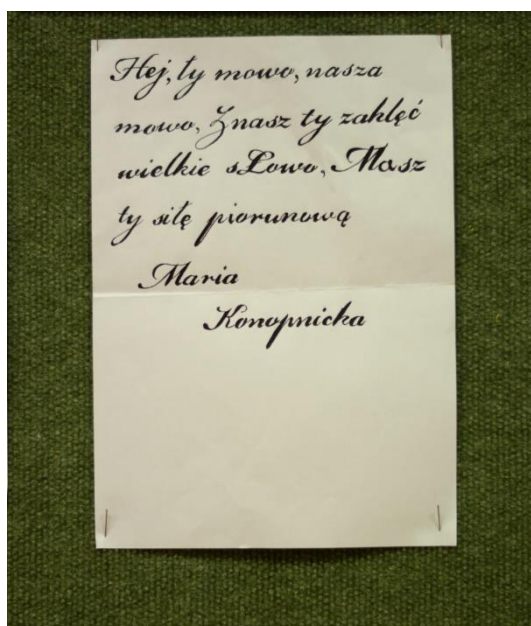 Hej, ty mowo, nasza
mowo, Znasz ty zaklęć
wielkie sŁowo, Masz
ty siłę piorunową
Maria
Konopnicka